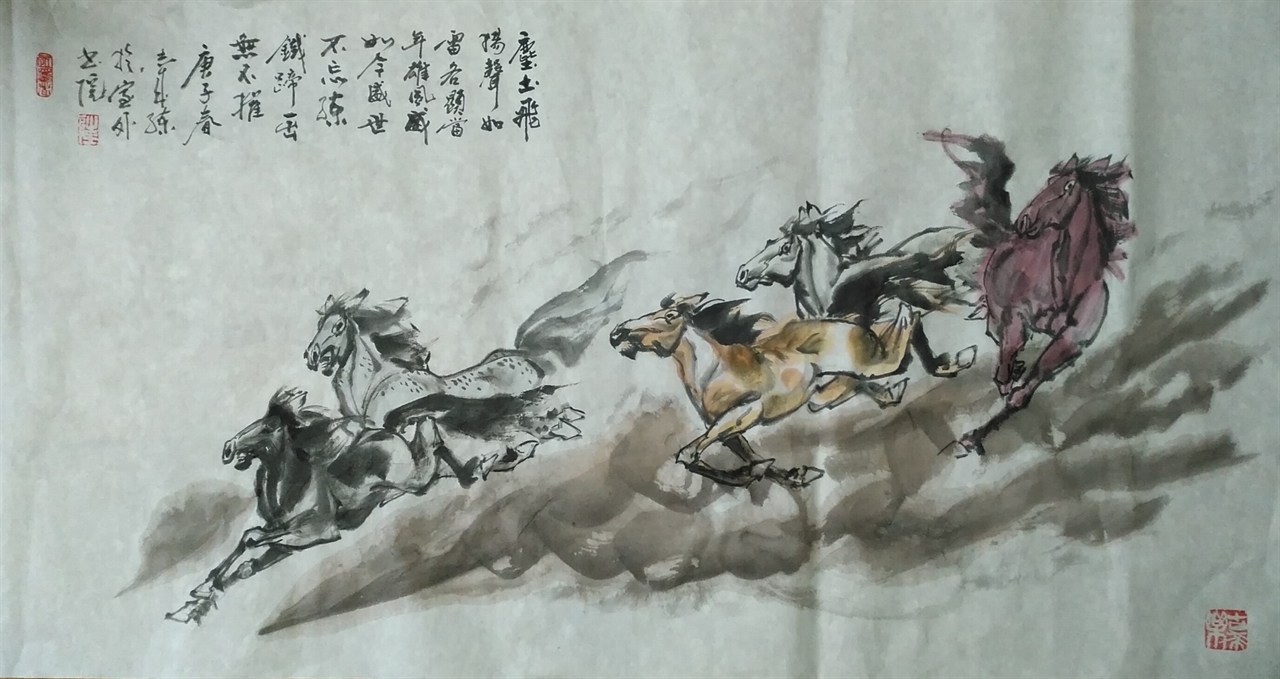 塵土飛
揚聲如
雷各顯當
年雄風盛
如今盛世
不忘練
鐵蹄一出
無不摧
庚子春
於室外